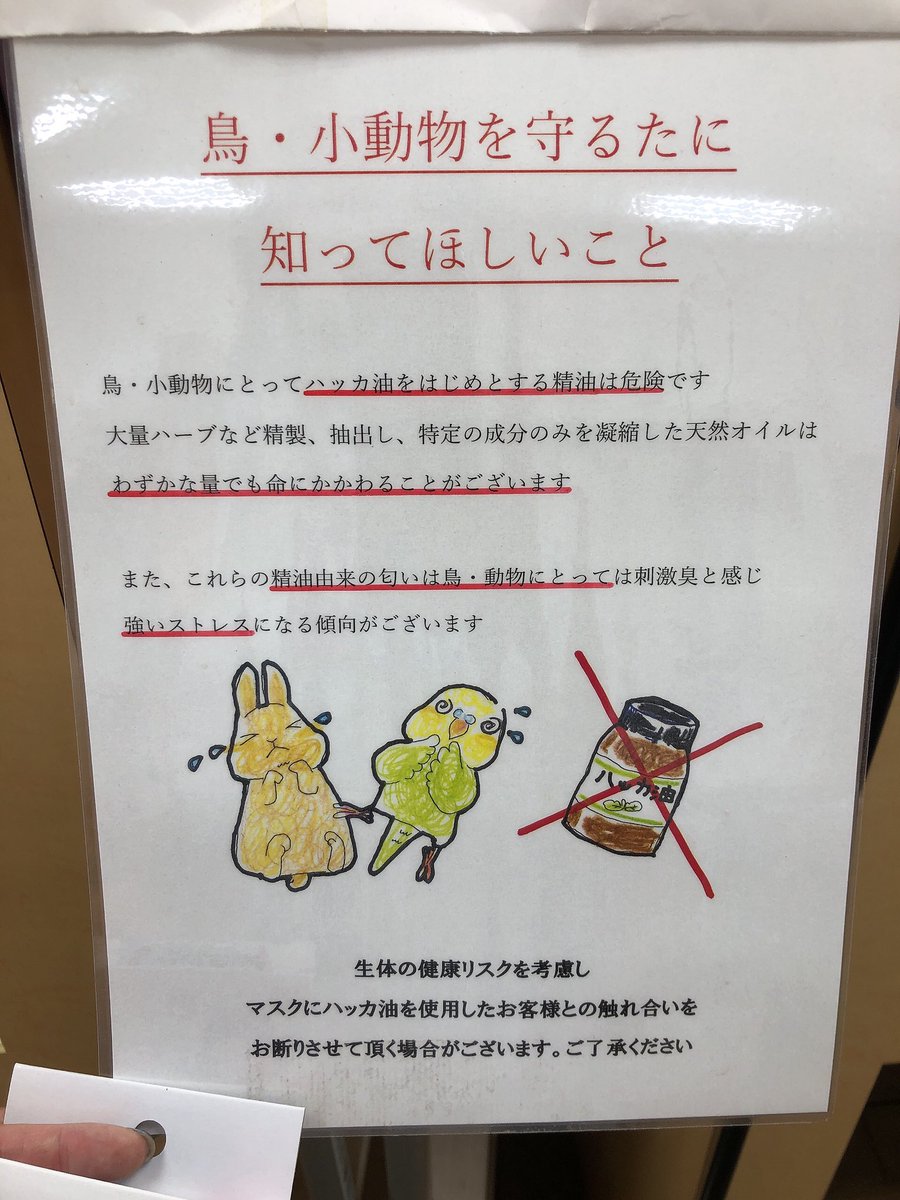 鳥・小動物を守るたに
知ってほしいこと
鳥・小動物にとってハッカ油をはじめとする精油は危険です
大量ハーブなど精製、抽出し、特定の成分のみを凝縮した天然オイルは
わずかな量でも命にかかわることがございます
また、これらの精油由来の匂いは鳥・動物にとっては刺激臭と感じ
強いストレスになる傾向がございます
ハッカ油
生体の健康リスクを考慮し
マスクにハッカ油を使用したお客様との触れ合いを
お断りさせて頂く場合がございます。ご了承ください